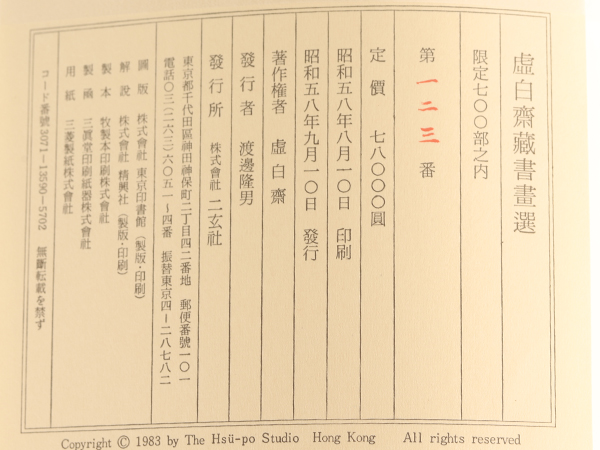 虛白齋藏書畫選
限定七〇〇部之内
第 一二三 番
定價 七八〇〇〇圓
昭和五八年八月一〇日 印刷
昭和五八年九月一〇日 發行
著作權者 虛白齋
發行者 渡邊隆男
發行所 株式會社 二玄社
東京都千代田區神田神保町二丁目四二番地 郵便番號一〇一
電話〇三(二六三)六〇五一～四番 振替東京四―二八七八二
圖版 株式會社 東京印書館(製版・印刷)
解說 株式會社 精興社(製版・印刷)
製本 牧製本印刷株式會社
製凾 三眞堂印刷紙器株式會社
用紙 三菱製紙株式會社
コード番號3071―13590―5702 無斷転載を禁ず
Copyright © 1983 by The Hsü-po Studio Hong Kong All rights reserved